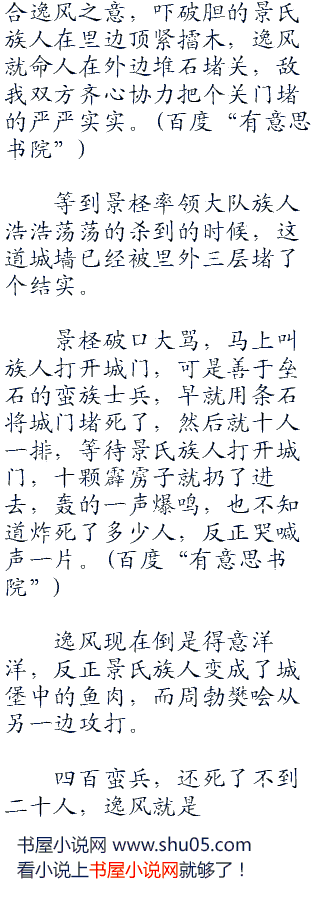 合逸风之意，吓破胆的景氏
族人在里边顶紧擂木，逸风
就命人在外边堆石堵关，敌
我双方齐心协力把个关门堵
的严严实实。(百度“有意思
书院”)
等到景柽率领大队族人
浩浩荡荡的杀到的时候，这
道城墙已经被里外三层堵了
个结实。
景柽破口大骂，马上叫
族人打开城门，可是善于垒
石的蛮族士兵，早就用条石
将城门堵死了，然后就十人
一排，等待景氏族人打开城
门，十颗霹雳子就扔了进
去，轰的一声爆鸣，也不知
道炸死了多少人，反正哭喊
声一片。(百度“有意思书
院”)
逸风现在倒是得意洋
洋，反正景氏族人变成了城
堡中的鱼肉，而周勃樊哙从
另一边攻打。
四百蛮兵，还死了不到
二十人，逸风就是
书屋小说网 www.shu05.com
看小说上书屋小说网就够了！